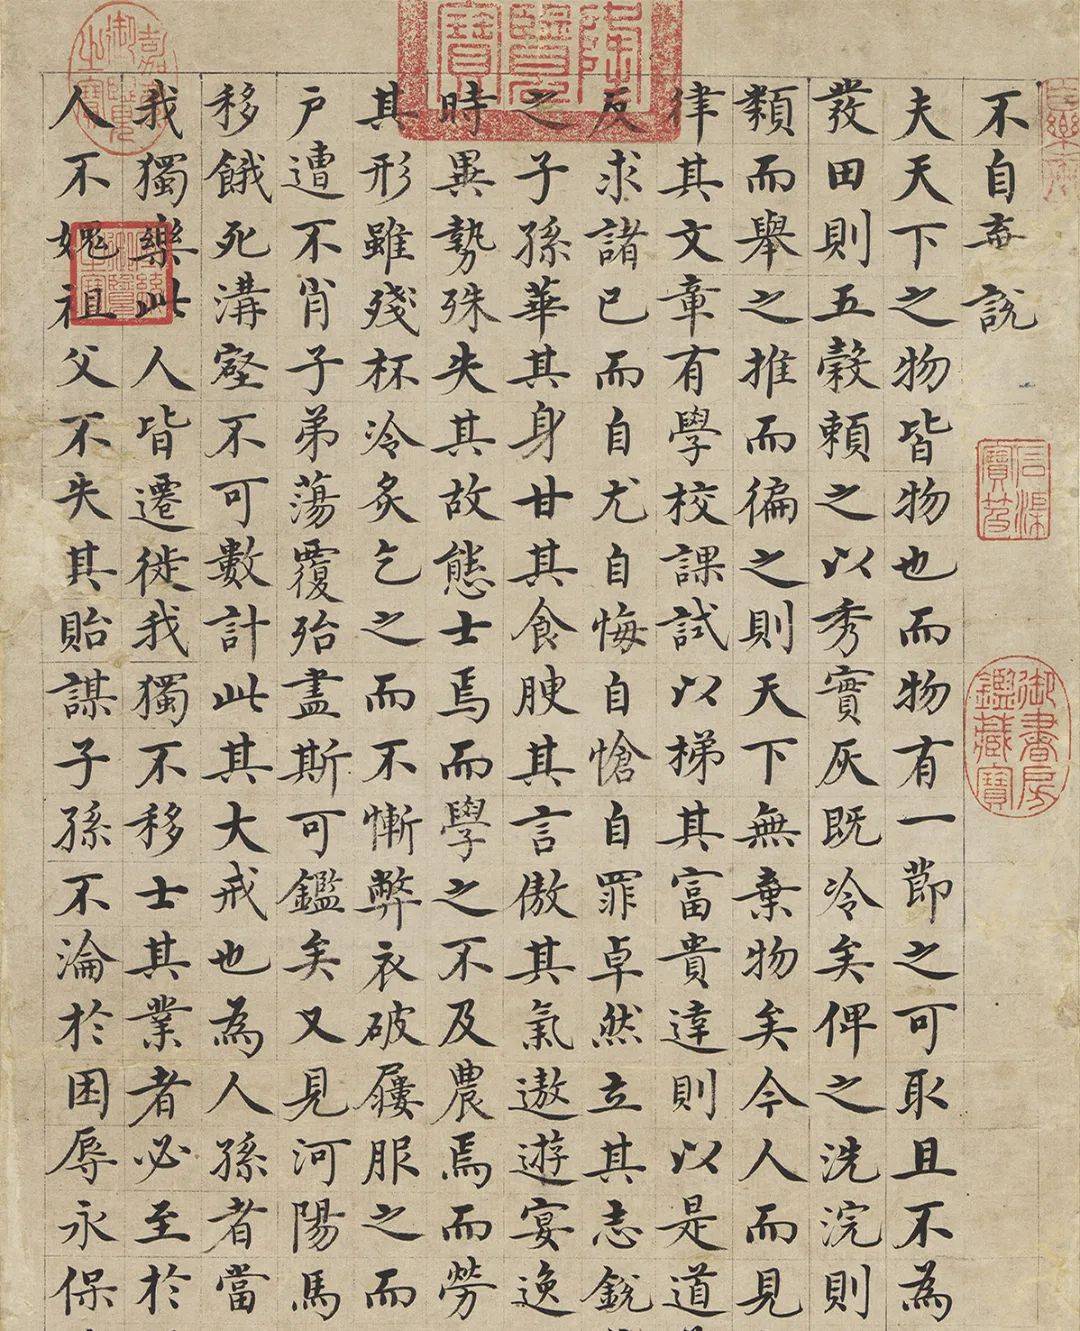 不自棄說
夫天下之物皆物也而物有一節之可取且不為
發田則五穀賴之以秀實灰既冷矣俾之洗浣則
類而舉之推而徧之則天下無棄物矣今人而見
律其文章有學校課試以梯其富貴達則以是道
反求諸已而自尤自悔自愴自罪卓然立其志銳
之子孫華其身甘其食腴其言傲其氣遨遊宴逸
時異勢殊失其故態士焉而學之不及農焉而勞
其形雖殘杯冷炙乞之而不慚弊衣破屨服之而
戶遭不肖子弟蕩覆殆盡斯可鑑矣又見河陽馬
移餓死溝壑不可數計此其大戒也為人孫者當
我獨樂此人皆遷徙我獨不移士其業者必至於
人不媿祖父不失其貽謀子孫不淪於困辱永保
石渠
寶笈
御書房
鑑藏寶
隆
覽
寶
嘉慶
御覽
之寶